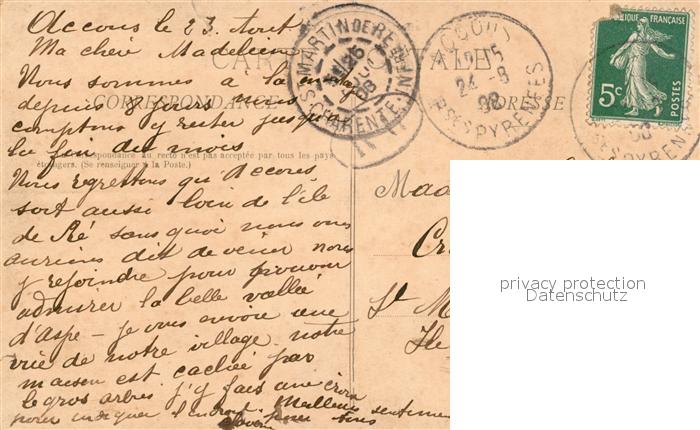 Accous le 23 Aout
Ma chere Madeleine
Nous sommes à la
depuis 8 jours nous
comptons y rester jusqu'à
la fin du mois
Nous regrettons qu'Accous
soit aussi loin de l'île
de Ré sans quoi nous vous
aurions dit de venir nous
y rejoindre pour pouvoir
admirer la belle vallée
d'Aspe - je vous envoie une
vue de notre village notre
maison est cachée par
le gros arbres j'y fais une croix
pour indiquer l'endroit. Meilleurs sentiments
pour tous
CORRESPONDANCE
ADRESSE
Correspondance au recto n'est pas acceptée par tous les pays
étrangers. (Se renseigner à la Poste.)
ST MARTIN DE RE
CHARENTE INF
08
ACCOUS
24 -8
08
BSES PYRENEES
RÉPUBLIQUE FRANÇAISE
5c
POSTES
PYRENEES
Mad
St M
Ile
privacy protection
Datenschutz